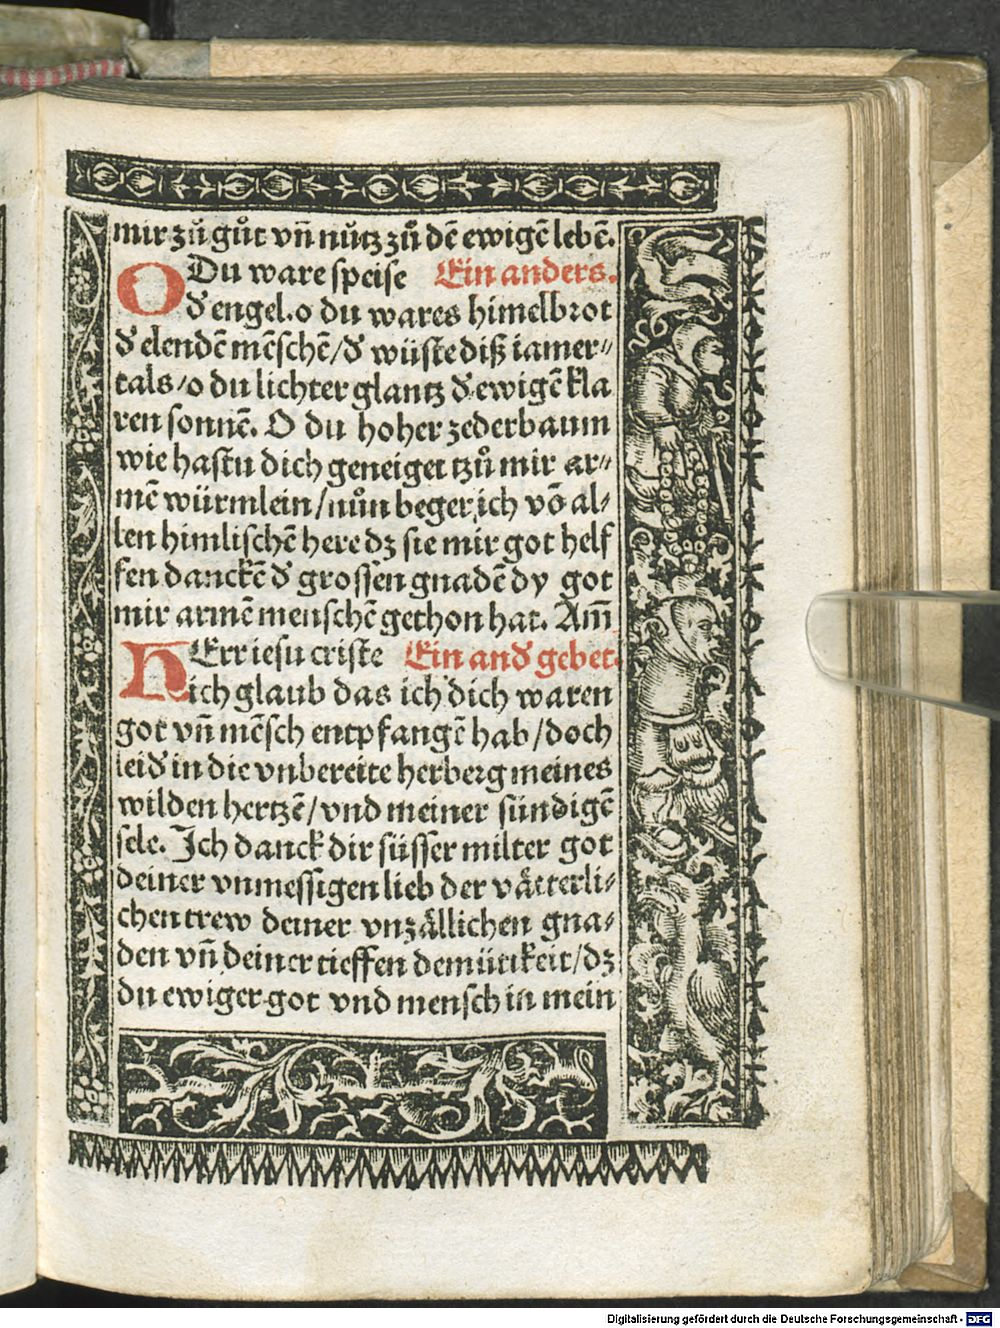 mir zů gůt vñ nutz zů dē ewigē lebē.
ODu ware speise Ein anders.
đ engel. o du wares himelbrot
đ elendē mēschē/đ wüste diß iamer⸗
tals/o du lichter glantz đ ewigē kla
ren sonnē. O du hoher zederbaum
wie hastu dich geneiget tzů mir ar⸗
mē würmlein/nůn beger ich vō al⸗
len himlischē here dz sie mir got helf
fen danckē đ grossen gnadē dy got
mir armē menschē gethon hat. Am̄
HErr iesu criste Ein and gebet.
ich glaub das ich dich waren
got vñ mēsch entpfangē hab/doch
leiđ in die vnbereite herberg meines
wilden hertzē/vnd meiner sündigē
sele. Ich danck dir süsser milter got
deiner vnmessigen lieb der vätterli⸗
chen trew deiner vnzällichen gna⸗
den vñ deiner tieffen demütikeit/dz
du ewiger got vnd mensch in mein
Digitalisierung gefördert durch die Deutsche Forschungsgemeinschaft - DFG